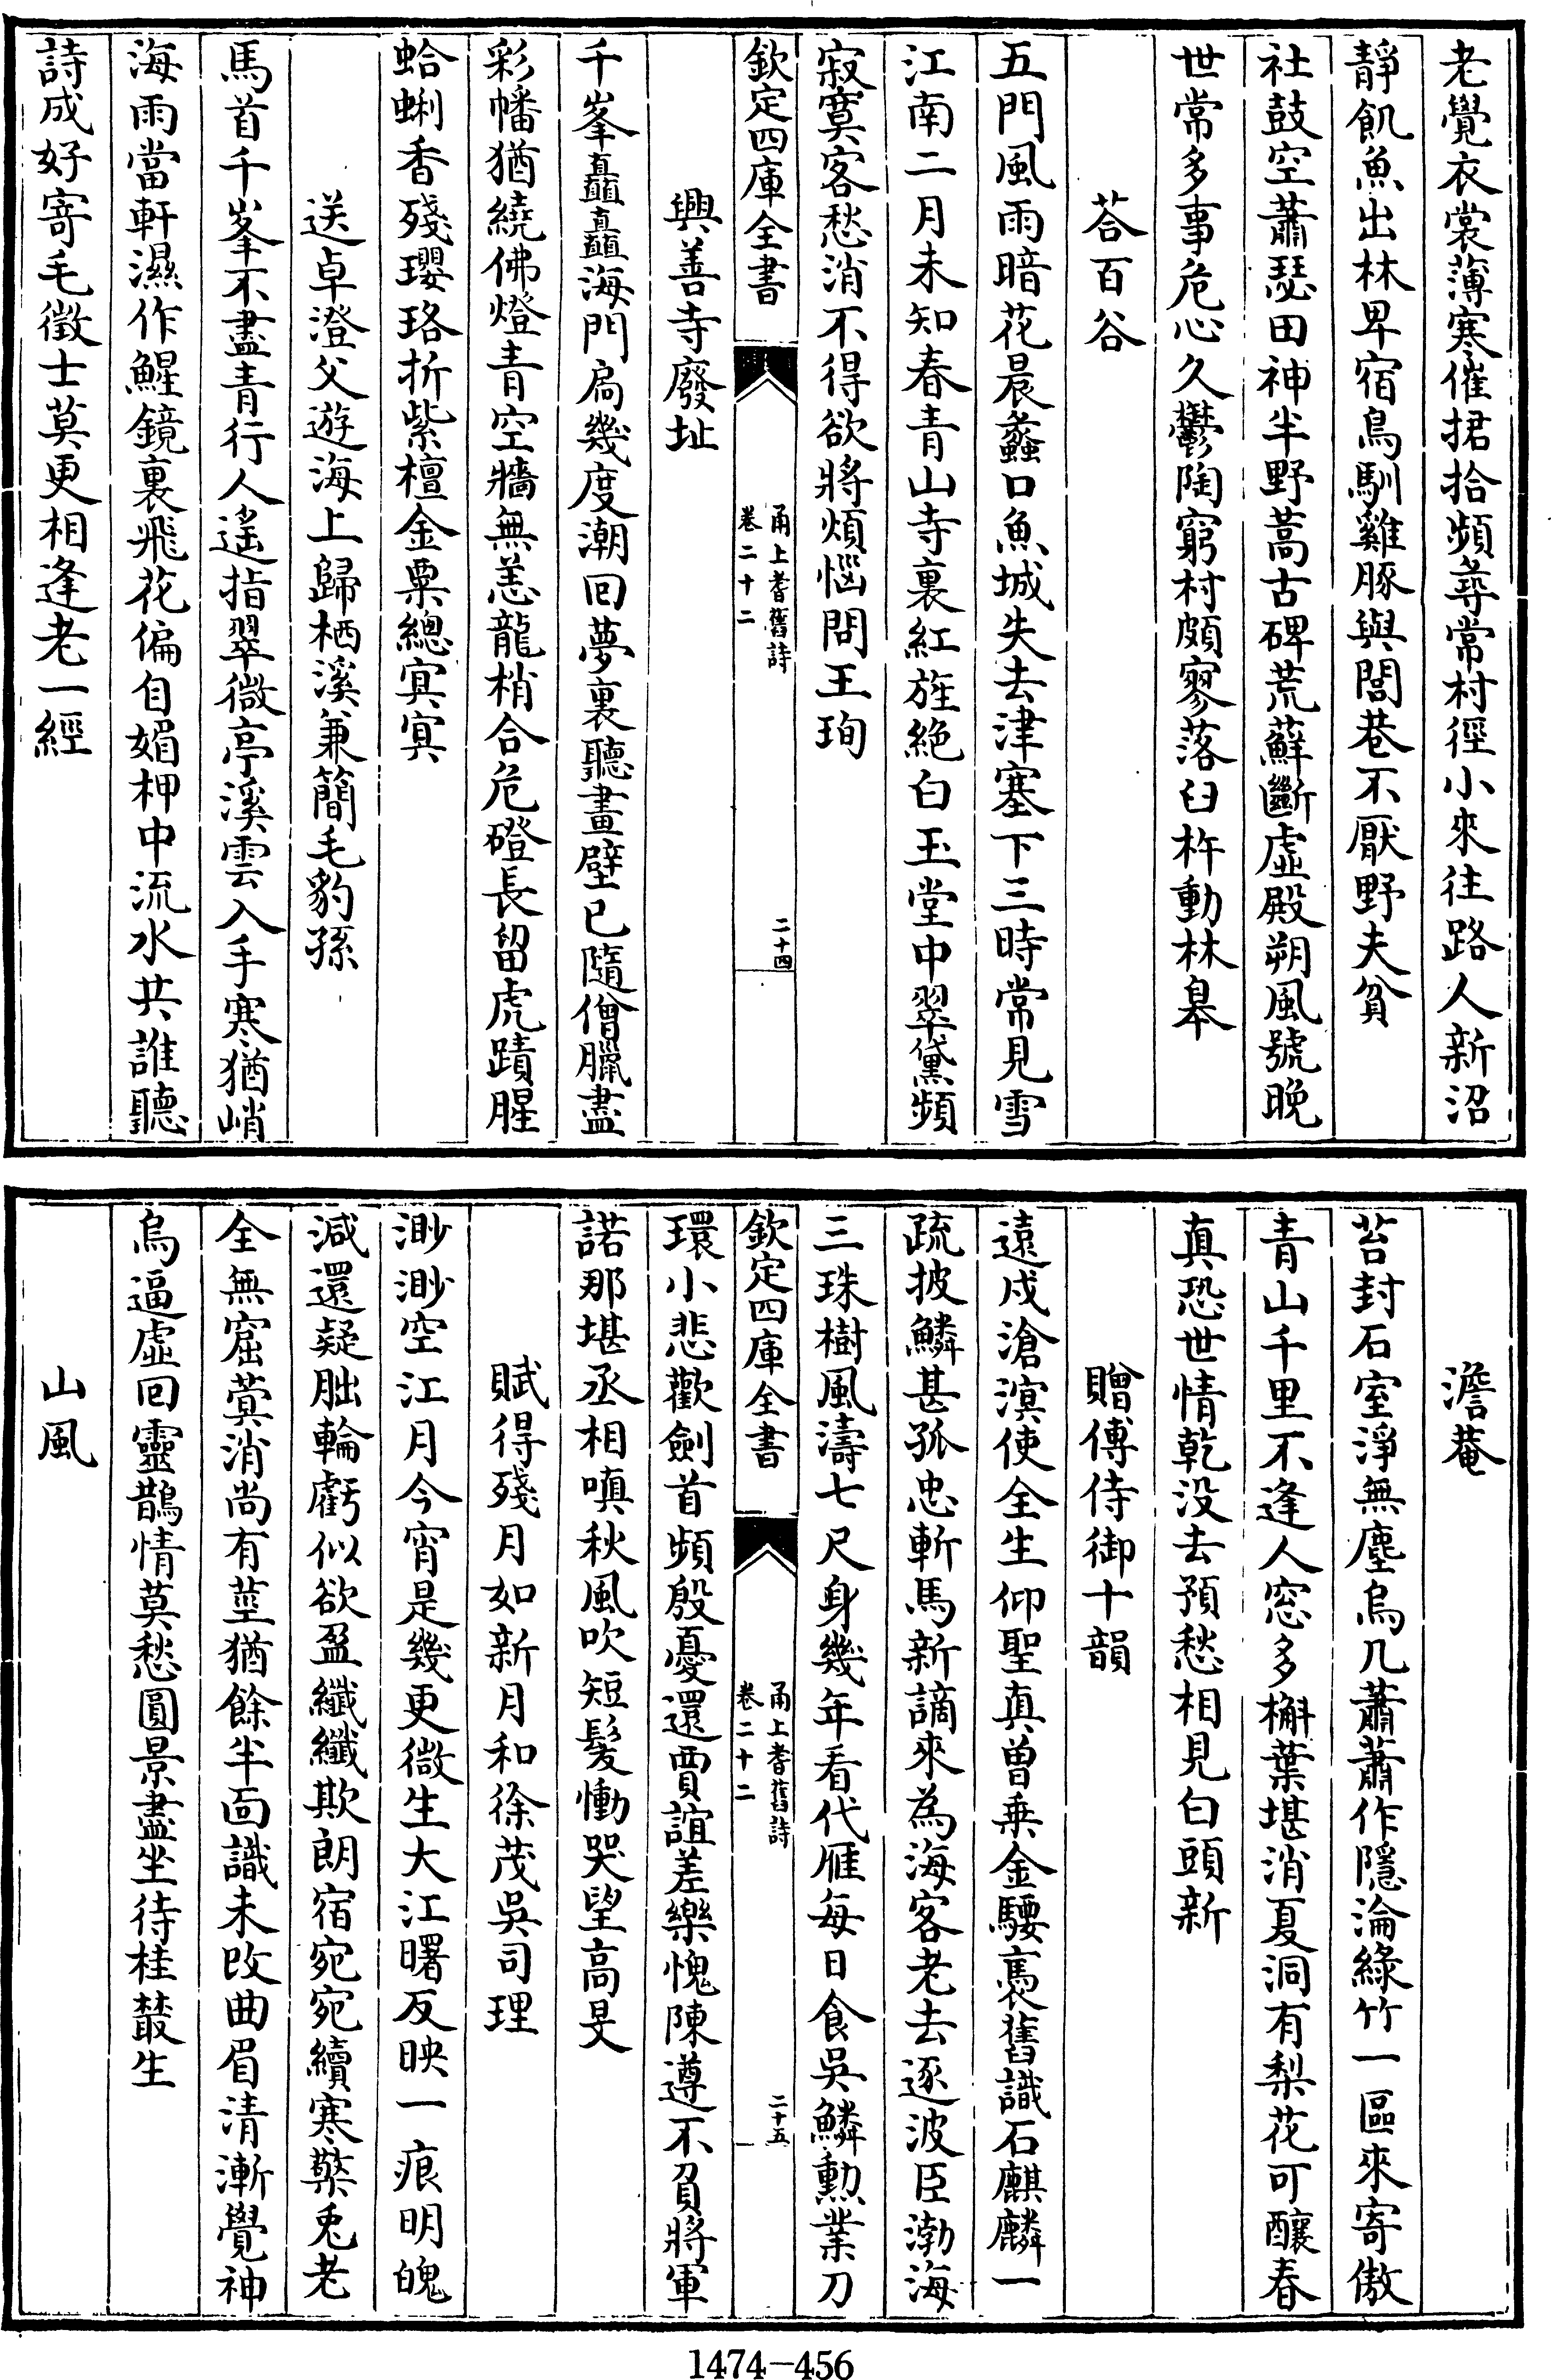 老覺衣裳薄寒催捃拾頻尋常村徑小來往路人新沼
靜飢魚出林卑宿鳥馴雞豚與閭巷不厭野夫貧
社鼓空蕭瑟田神半野蒿古碑荒蘚斷虛殿朔風號晚
世常多事危心久鬱陶窮村頗寥落臼杵動林皋
荅百谷
五門風雨暗花晨蠡口魚城失去津塞下三時常見雪
江南二月未知春青山寺裏紅旌絶白玉堂中翠黛頻
寂寞客愁消不得欲將煩惱問王珣
欽定四庫全書
甬上耆舊詩
卷二十二
二十四
興善寺廢址
千峯矗矗海門扃幾度潮回夢裏聽畫壁已隨僧臘盡
彩幡猶繞佛燈青空牆無恙龍梢合危磴長留虎蹟腥
蛤蜊香殘瓔珞折紫檀金粟總寘寘
送卓澄父遊海上歸栖溪兼簡毛豹孫
馬首千峯不盡青行人遙指翠微亭溪雲入手寒猶峭
海雨當軒濕作鯹鏡裏飛花偏自媚柙中流水共誰聽
詩成好寄毛徵士莫更相逢老一經
澹菴
苔封石室淨無塵烏几蕭蕭作隱淪綠竹一區來寄傲
青山千里不逢人窓多槲葉堪消夏洞有梨花可釀春
真恐世情乾没去預愁相見白頭新
贈傅侍御十韻
遠戍滄溟使全生仰聖真曽乗金騕褭舊識石麒麟一
疏披鱗甚孤忠斬馬新謫來為海客老去逐波臣渤海
三珠樹風濤七尺身幾年看代雁每日食吳鱗勲業刀
欽定四庫全書
甬上耆舊詩
卷二十二
二十五
環小悲歡劍首頻殷憂還賈誼差樂愧陳遵不負將軍
諾那堪丞相嗔秋風吹短髪慟哭望高旻
賦得殘月如新月和徐茂吳司理
渺渺空江月今宵是幾更微生大江曙反映一痕明魄
減還疑朏輪虧似欲盈纖纖欺朗宿宛宛續寒檠兎老
全無窟蓂消尚有莖猶餘半面識未改曲眉清漸覺神
烏逼虛回靈鵲情莫愁圓景盡坐待桂叢生
山風
1474-456